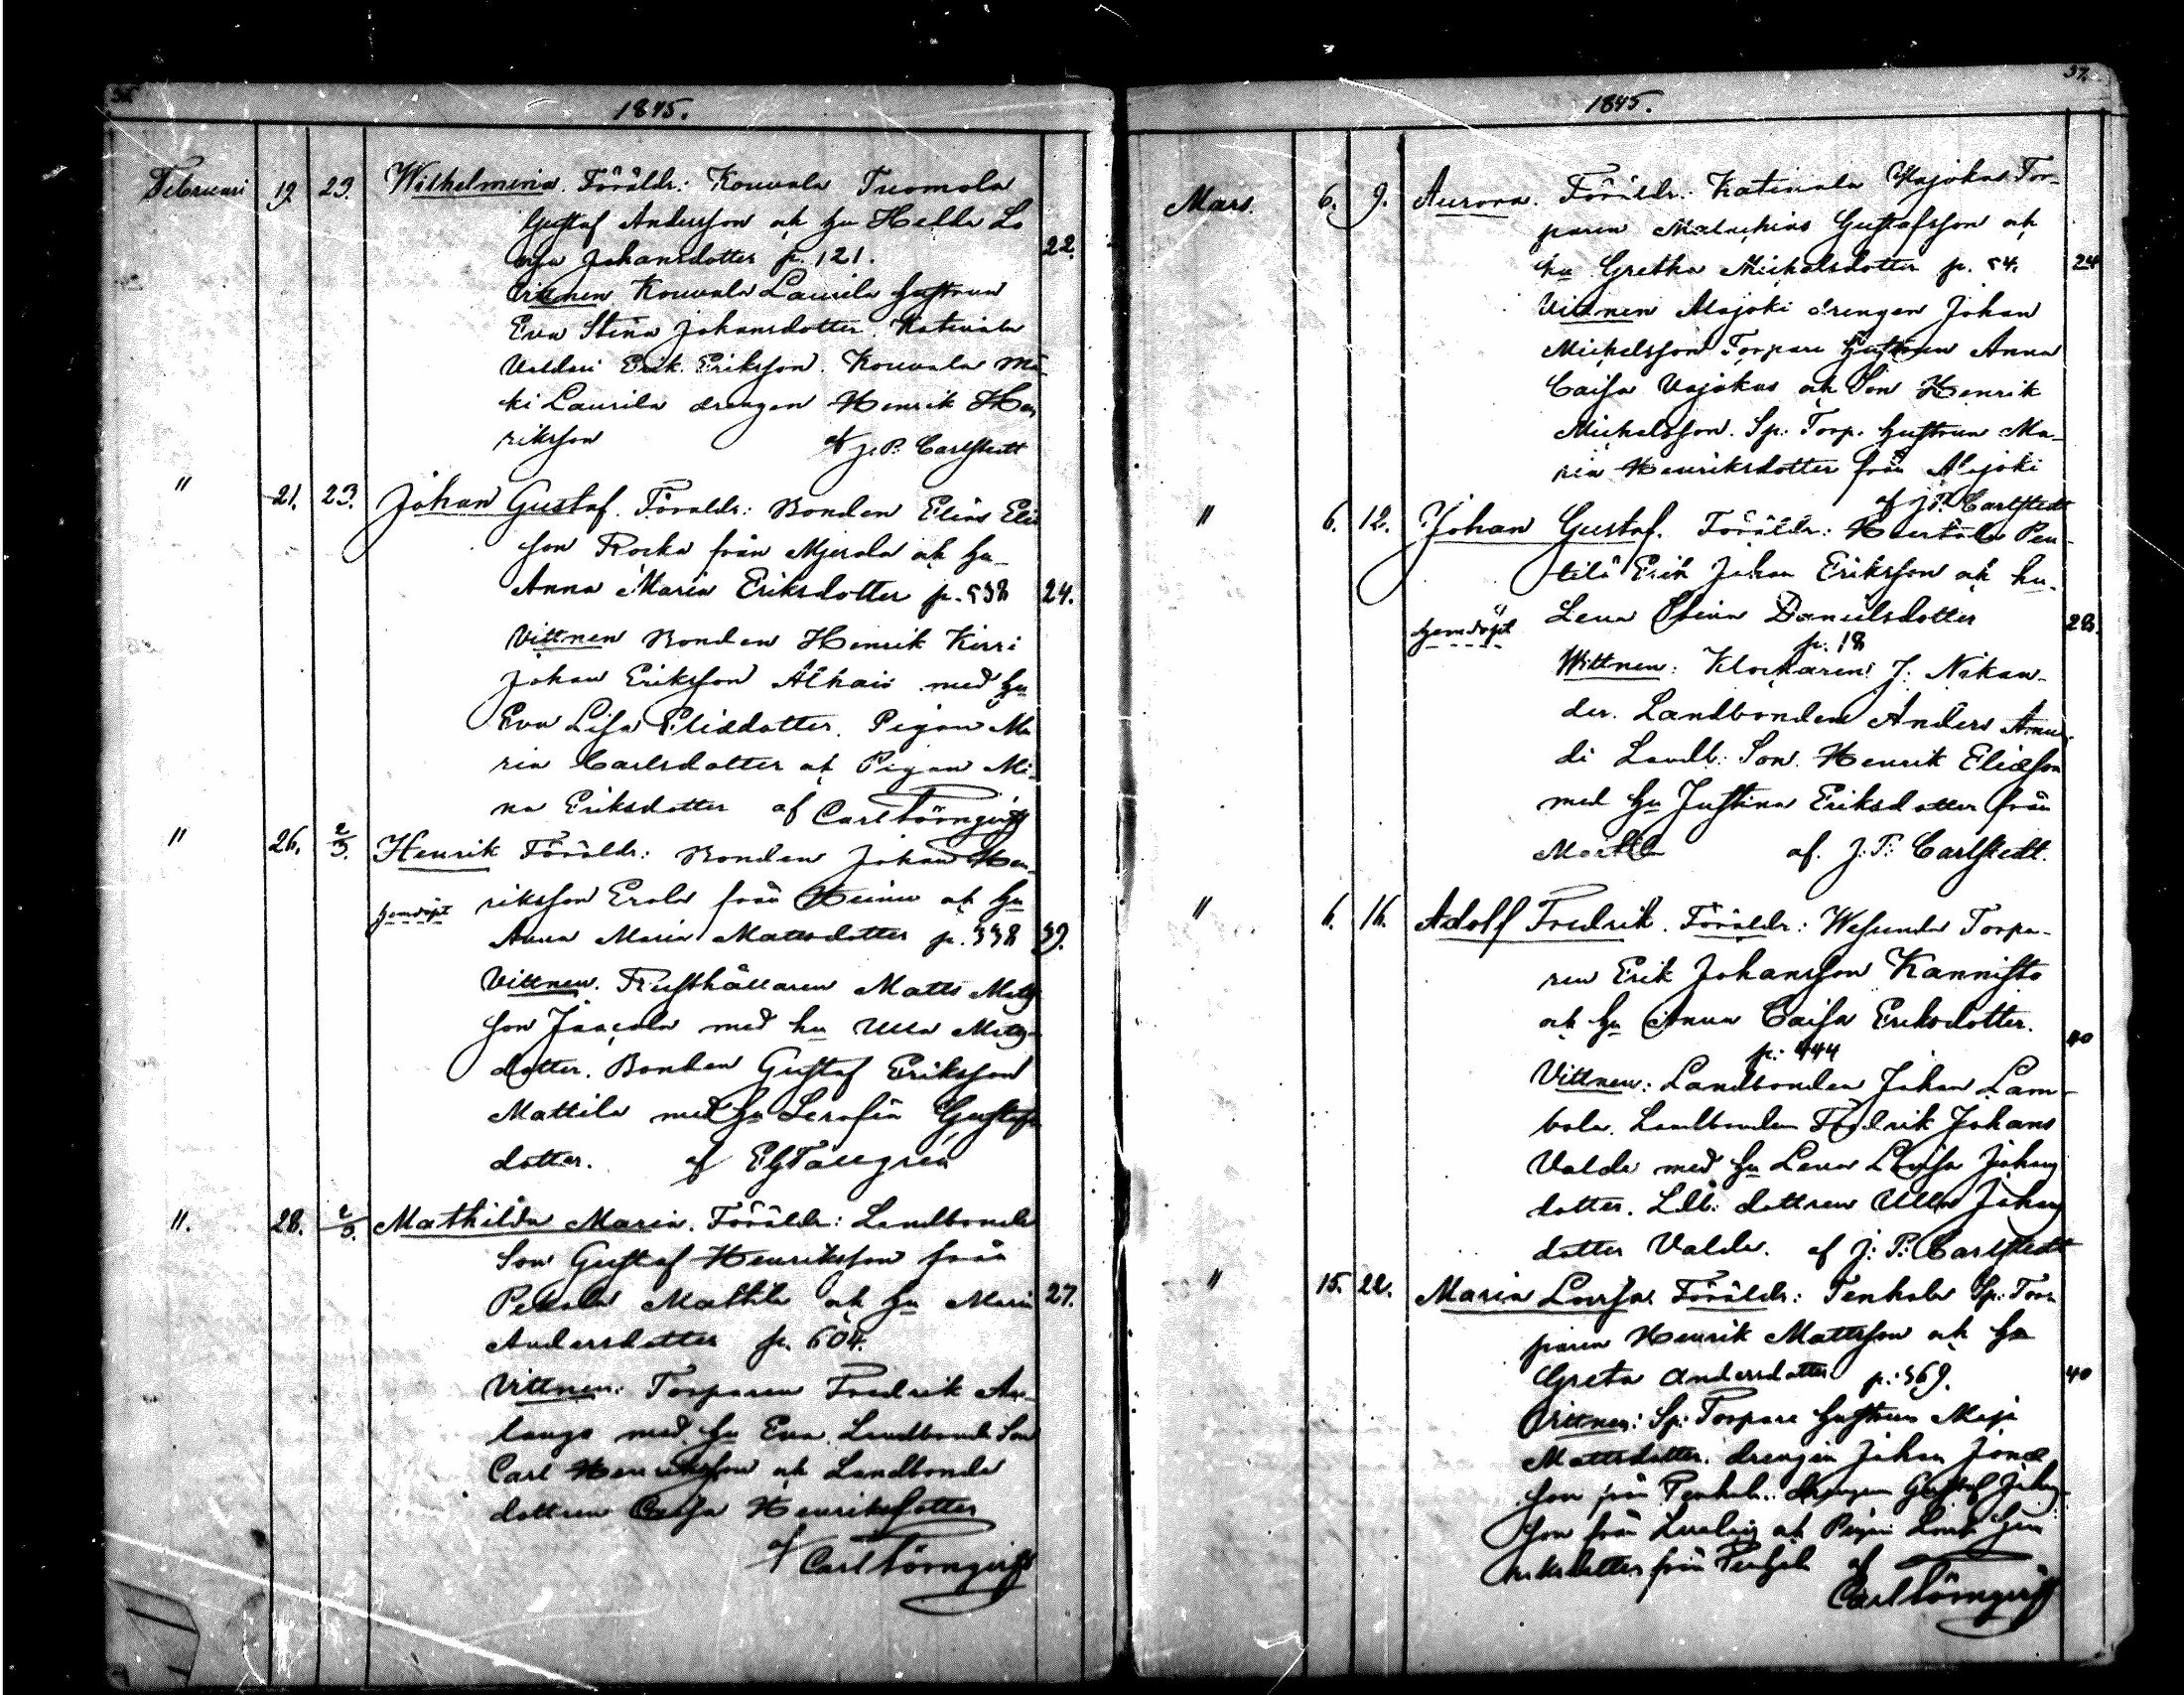 36.
1845.
Februari 19. 23. Wilhelmina. Föräldr: Kouvala Tuomola
Gustaf Andersson ock hu Hella Lo
visa Johansdotter p. 121. 22.
Vittnen Kouvala Laurila hustrun
Eva Stina Johansdotter. Katinala
Valdari Erik Eriksson. Kouvala Mä-
ki Laurila drengen Henrik Hen
riksson af J. P. Carlstedt
" 21. 23. Johan Gustaf. Föraldr: Bonden Elias Elia
son Rocka från Mjerola ock hu
Anna Maria Eriksdotter p. 538 24.
Vittnen Bonden Henrik Kirri
Johan Eriksson Alhais med hu
Eva Lisa Eliædotter. Pigan Ma
ria Carlsdotter ock Pigan Mi-
na Eriksdotter af Carl Törnqvist
" 26. 2/3. Henrik Föräldr: Bonden Johan Hen-
hemdöpt riksson Erola från Heinu ock hu
Anna Maria Mattsdotter p. 338 39.
Vittnen. Rusthållaren Matts Matts
son Jaacola med hu Ulla Matts-
dotter. Bonden Gustaf Eriksson
Mattila med hu Serafia Gustafs
dotter. af EG Tallgrén
". 28. 2/3. Mathilda Maria. Föräldr: Landbonde
Son Gustaf Henriksson från
Mattila ock hu Maria 27.
Andersdotter p. 604.
Vittnen: Torparen Fredrik
med hu Eva. Landbonde Son
Carl Henriksson ock Landbonde
dottren Caisa Henriksdotter
af Carl Törnqvist
37.
1845.
Mars. 6. 9. Aurora. Föräldr: Katinala Vajokas Tor-
paren Malachias Gustafsson ock
hu Gretha Michelsdotter p. 54. 24
Vittnen Alajoki drengen Johan
Michelsson Torpare hustrun Anna
Caisa Vajokas ock Son Henrik
Michelsson. Sp: Torp. hustrun Ma-
ria Henriksdotter från Alajoki
af J. P. Carlstedt
" 6. 12. Johan Gustaf. Föräldr: Huertola Pen-
tilä Erik Johan Eriksson ock hu.
hemdöpt Lena Stina Danielsdotter 28.
p. 18
Wittnen: Klockaren J. Nikan-
der. Landbonden Anders
Landb: Son. Henrik Eliæson
med hu Justina Eriksdotter från
af. J: P: Carlstedt.
" 6. 16. Adolf Fredrik. Föräldr: Wesunda Torpa-
ren Erik Johansson Kannisto
ock hu Anna Caisa Eriksdotter. 40
p: 444
Vittnen: Landbonden Johan Lam-
bola. Landbonden Fredrik Johans
Valde med hu Lena Lovisa Johans
dotter. Ldb: dottren Ulla Johans
dotter Valde. af J: P: Carlstedt
" 15. 22. Maria Lovisa. Föräldr: Tenhola Sp: Tor-
paren Henrik Mattsson ock hu
Greta Andersdotter p: 369. 40
Vittnen: Sp: Torpare hustrun Maja
Mattsdotter. drengen Johan Jonæ
son från Tenhola. drengen Gustaf Johans-
son från ock Pigan Hen
riksdotter från af
Carl Törnqvist